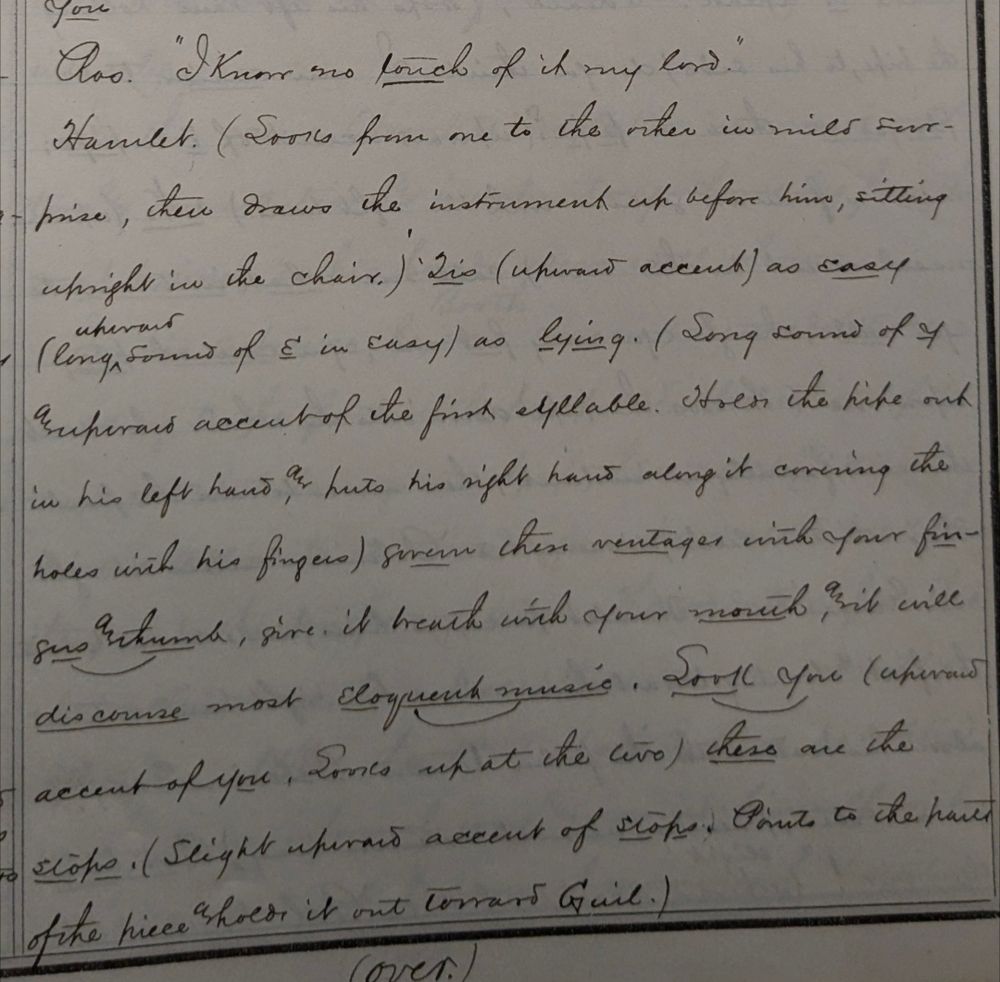 You
Ros. "I Know no touch of it my lord."
Hamlet. (Looks from one to the other in mild sur-
prise, then draws the instrument up before him, sitting
upright in the chair.) 'Tis (upward accent) as easy
upward
(long ‸ sound of E in easy) as lying. (Long sound of y
& upward accent of the first syllable. Holds the pipe out
in his left hand, & puts his right hand along it covering the
holes with his fingers) govern these ventages with your fin-
gers & thumb, give it breath with your mouth, & it will
discourse most eloquent music. Look you (upward
accent of you. Looks up at the two) these are the
stops. (Slight upward accent of stops. Points to the parts
of the piece & holds it out toward Guil.)
(over.)